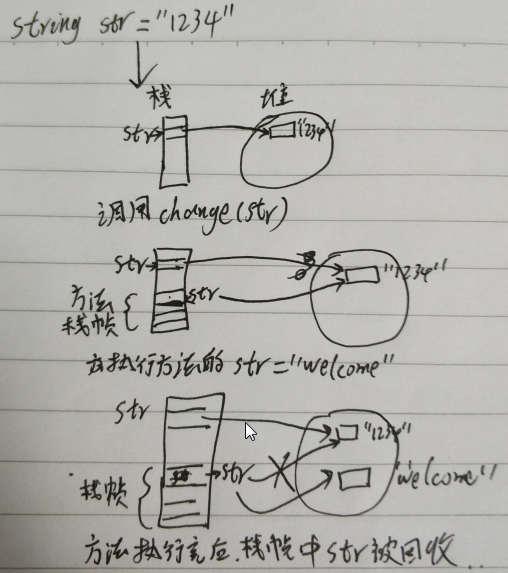 string str = "1234"
栈 堆
str "1234"
调用 change(str)
str "1234"
方法 str
栈帧
当执行方法的 str = "welcome"
str "1234"
栈帧 str "welcome"
方法执行完后,栈帧中str被回收..